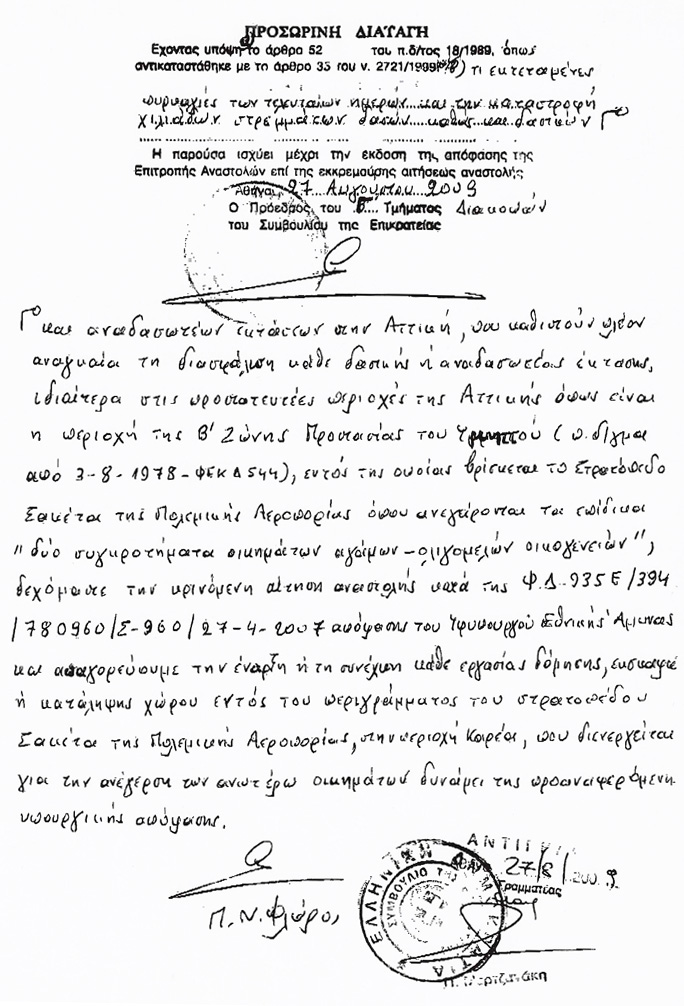 ΠΡΟΣΩΡΙΝΗ ΔΙΑΤΑΓΗ
Έχοντας υπόψη το άρθρα 52 του π.δ/τος 18/1989, όπως
αντικαταστάθηκε με το άρθρο 35 του ν. 2721/1999 τις εκτεταμένες
πυρκαγιές των τελευταίων ημερών και την καταστροφή
χιλιάδων στρεμμάτων δασών καθώς και δασικών Γο
Η παρούσα ισχύει μέχρι την έκδοση της απόφασης της
Επιτροπής Αναστολών επί της εκκρεμούσης αιτήσεως αναστολής
Αθήναι, 27 Αυγούστου 2009
Ο Πρόεδρος του Τμήματος Διακοπών
του Συμβουλίου της Επικρατείας
Γο και αναδασωτέων εκτάσεων στην Αττική, που καθιστούν πλέον
αναγκαία τη διασφάλιση κάθε δασικής ή αναδασωτέας έκτασης,
ιδιαίτερα στις προστατευτέες περιοχές της Αττικής όπως είναι
η περιοχή της Β' Ζώνης Προστασίας του Υμηττού (π.δ/γμα
από 3-8-1978-ΦΕΚ Δ544), εντός της οποίας βρίσκεται το Στρατόπεδο
Σακέτα της Πολεμικής Αεροπορίας όπου ανεγείρονται τα επίδικα
"δύο συγκροτήματα οικημάτων αγάμων-ολιγομελών οικογενειών",
δεχόμαστε την κρινόμενη αίτηση αναστολής κατά της Φ.Δ-935Ε/394
/780960/Σ-960/27-4-2007 απόφασης του Υφυπουργού Εθνικής Άμυνας
και απαγορεύουμε την έναρξη ή τη συνέχιση κάθε εργασίας δόμησης, εκσκαφής
ή κατάληψης χώρου εντός του περιγράμματος του στρατοπέδου
Σακέτα της Πολεμικής Αεροπορίας, στην περιοχή Καρέα, που διενεργείται
για την ανέγερση των ανωτέρω οικημάτων δυνάμει της προαναφερόμενης
υπουργικής απόφασης.
Π.Ν. Φλώρος
ΕΛΛΗΝΙΚΗ ΔΗΜΟΚΡΑΤΙΑ
ΣΥΜΒΟΥΛΙΟ ΤΗΣ
27/8/2009
Γραμματέας